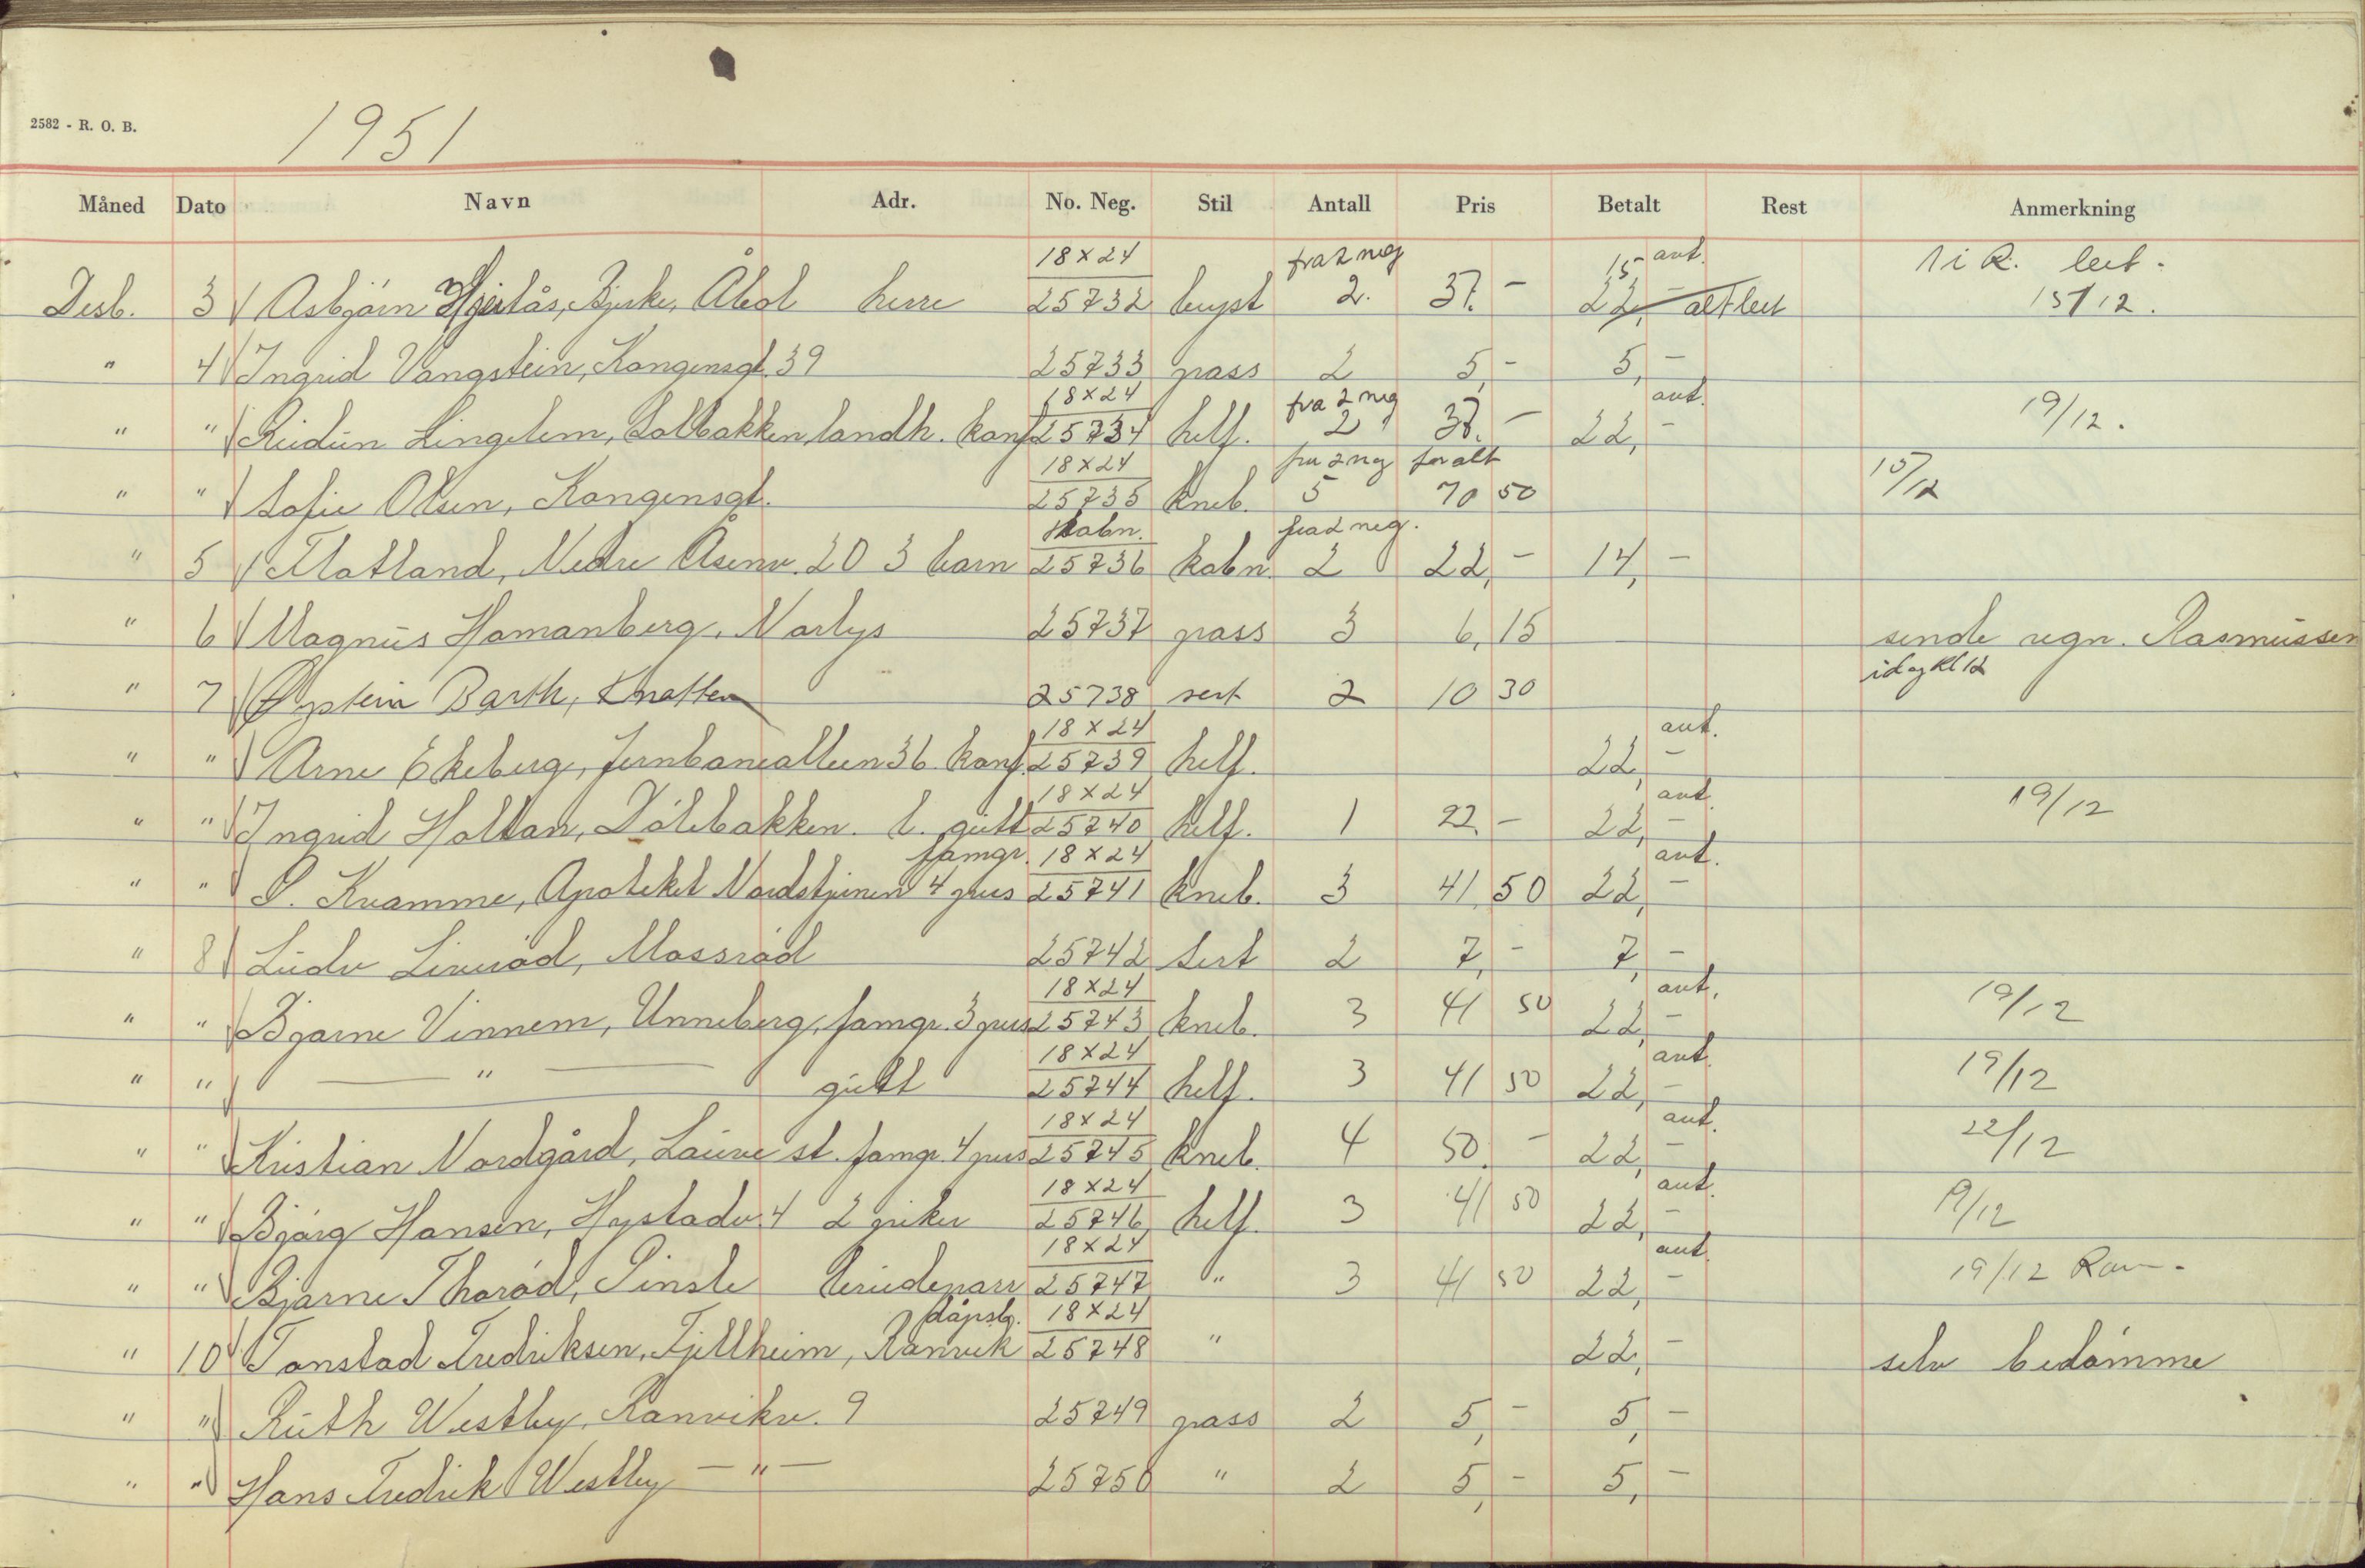 2582 - R. O. B.
1951
Måned Dato Navn Adr. No. Neg. Stil Antall Pris Betalt Rest Anmerkning
18x24 fra 2 neg 15- ant. 1 i R. lev.
Desb. 3 Asbjörn Bjerke, herre 25732 byst 2. 37.- 22,- alt lev 15/12.
" 4 Ingrid Vangstein, Kongensgt. 39 25733 pass 2 5,- 5,-
18x24 fra 2 neg ant.
" " Reidun Lingelem, Solbakken, landh. konf 25734 helf. 2 37.- 22,- 19/12.
18x24 fra 2 neg for alt
" " Sofie Olsen, Kongensgt. 25735 kneb. 5 70 50 15/12
kabn. fra 2 neg.
" 5 Flatland, Nedre Åsenv. 20 3 barn 25736 kabn. 2 22,- 14,-
" 6 Magnus Hamanberg, Narlys 25737 pass 3 6,15 sende regn. Rasmussen
" 7 Øystein Barth, Knatten 25738 sert 2 10 30 idag kl 12
18x24 ant.
" " Arne Ekeberg, Jernbanealleen 36. konf. 25739 helf. 22,-
18x24 ant.
" " Ingrid Holtan, Dölebakken. l. gutt 25740 helf. 1 22.- 22,- 19/12
famgr. 18x24 ant.
" " S. Kvamme, Apoteket Nordstjernen 4 pers 25741 kneb. 3 41,50 22,-
" 8 Ludv Liveröd, Massröd 25742 Sert 2 7,- 7,-
18x24 ant.
" " Bjarne Vinnem, Unneberg, famgr. 3 pers 25743 kneb. 3 41 50 22,- 19/12
18x24 ant.
" " — " — gutt 25744 helf. 3 41 50 22,- 19/12
18x24 ant.
" " Kristian Nordgård, Lauve st. famgr. 4 pers 25745 kneb. 4 50.- 22,- 22/12
18x24 ant.
" " Bjørg Hansen, Hystadv. 4 2 piker 25746 helf. 3 41 50 22,- 19/12
18x24 ant.
" " Bjarne Thoröd, brudepar 25747 " 3 41 50 22,- 19/12
dåpsb. 18x24
" 10 Tanstad Fredriksen, Fjellheim, Ranvik 25748 " 22,- selv bedömme
" " Ruth Westby, Ranvikv. 9 25749 pass 2 5,- 5,-
" " Hans Fredrik Westby — " — 25750 " 2 5,- 5,-